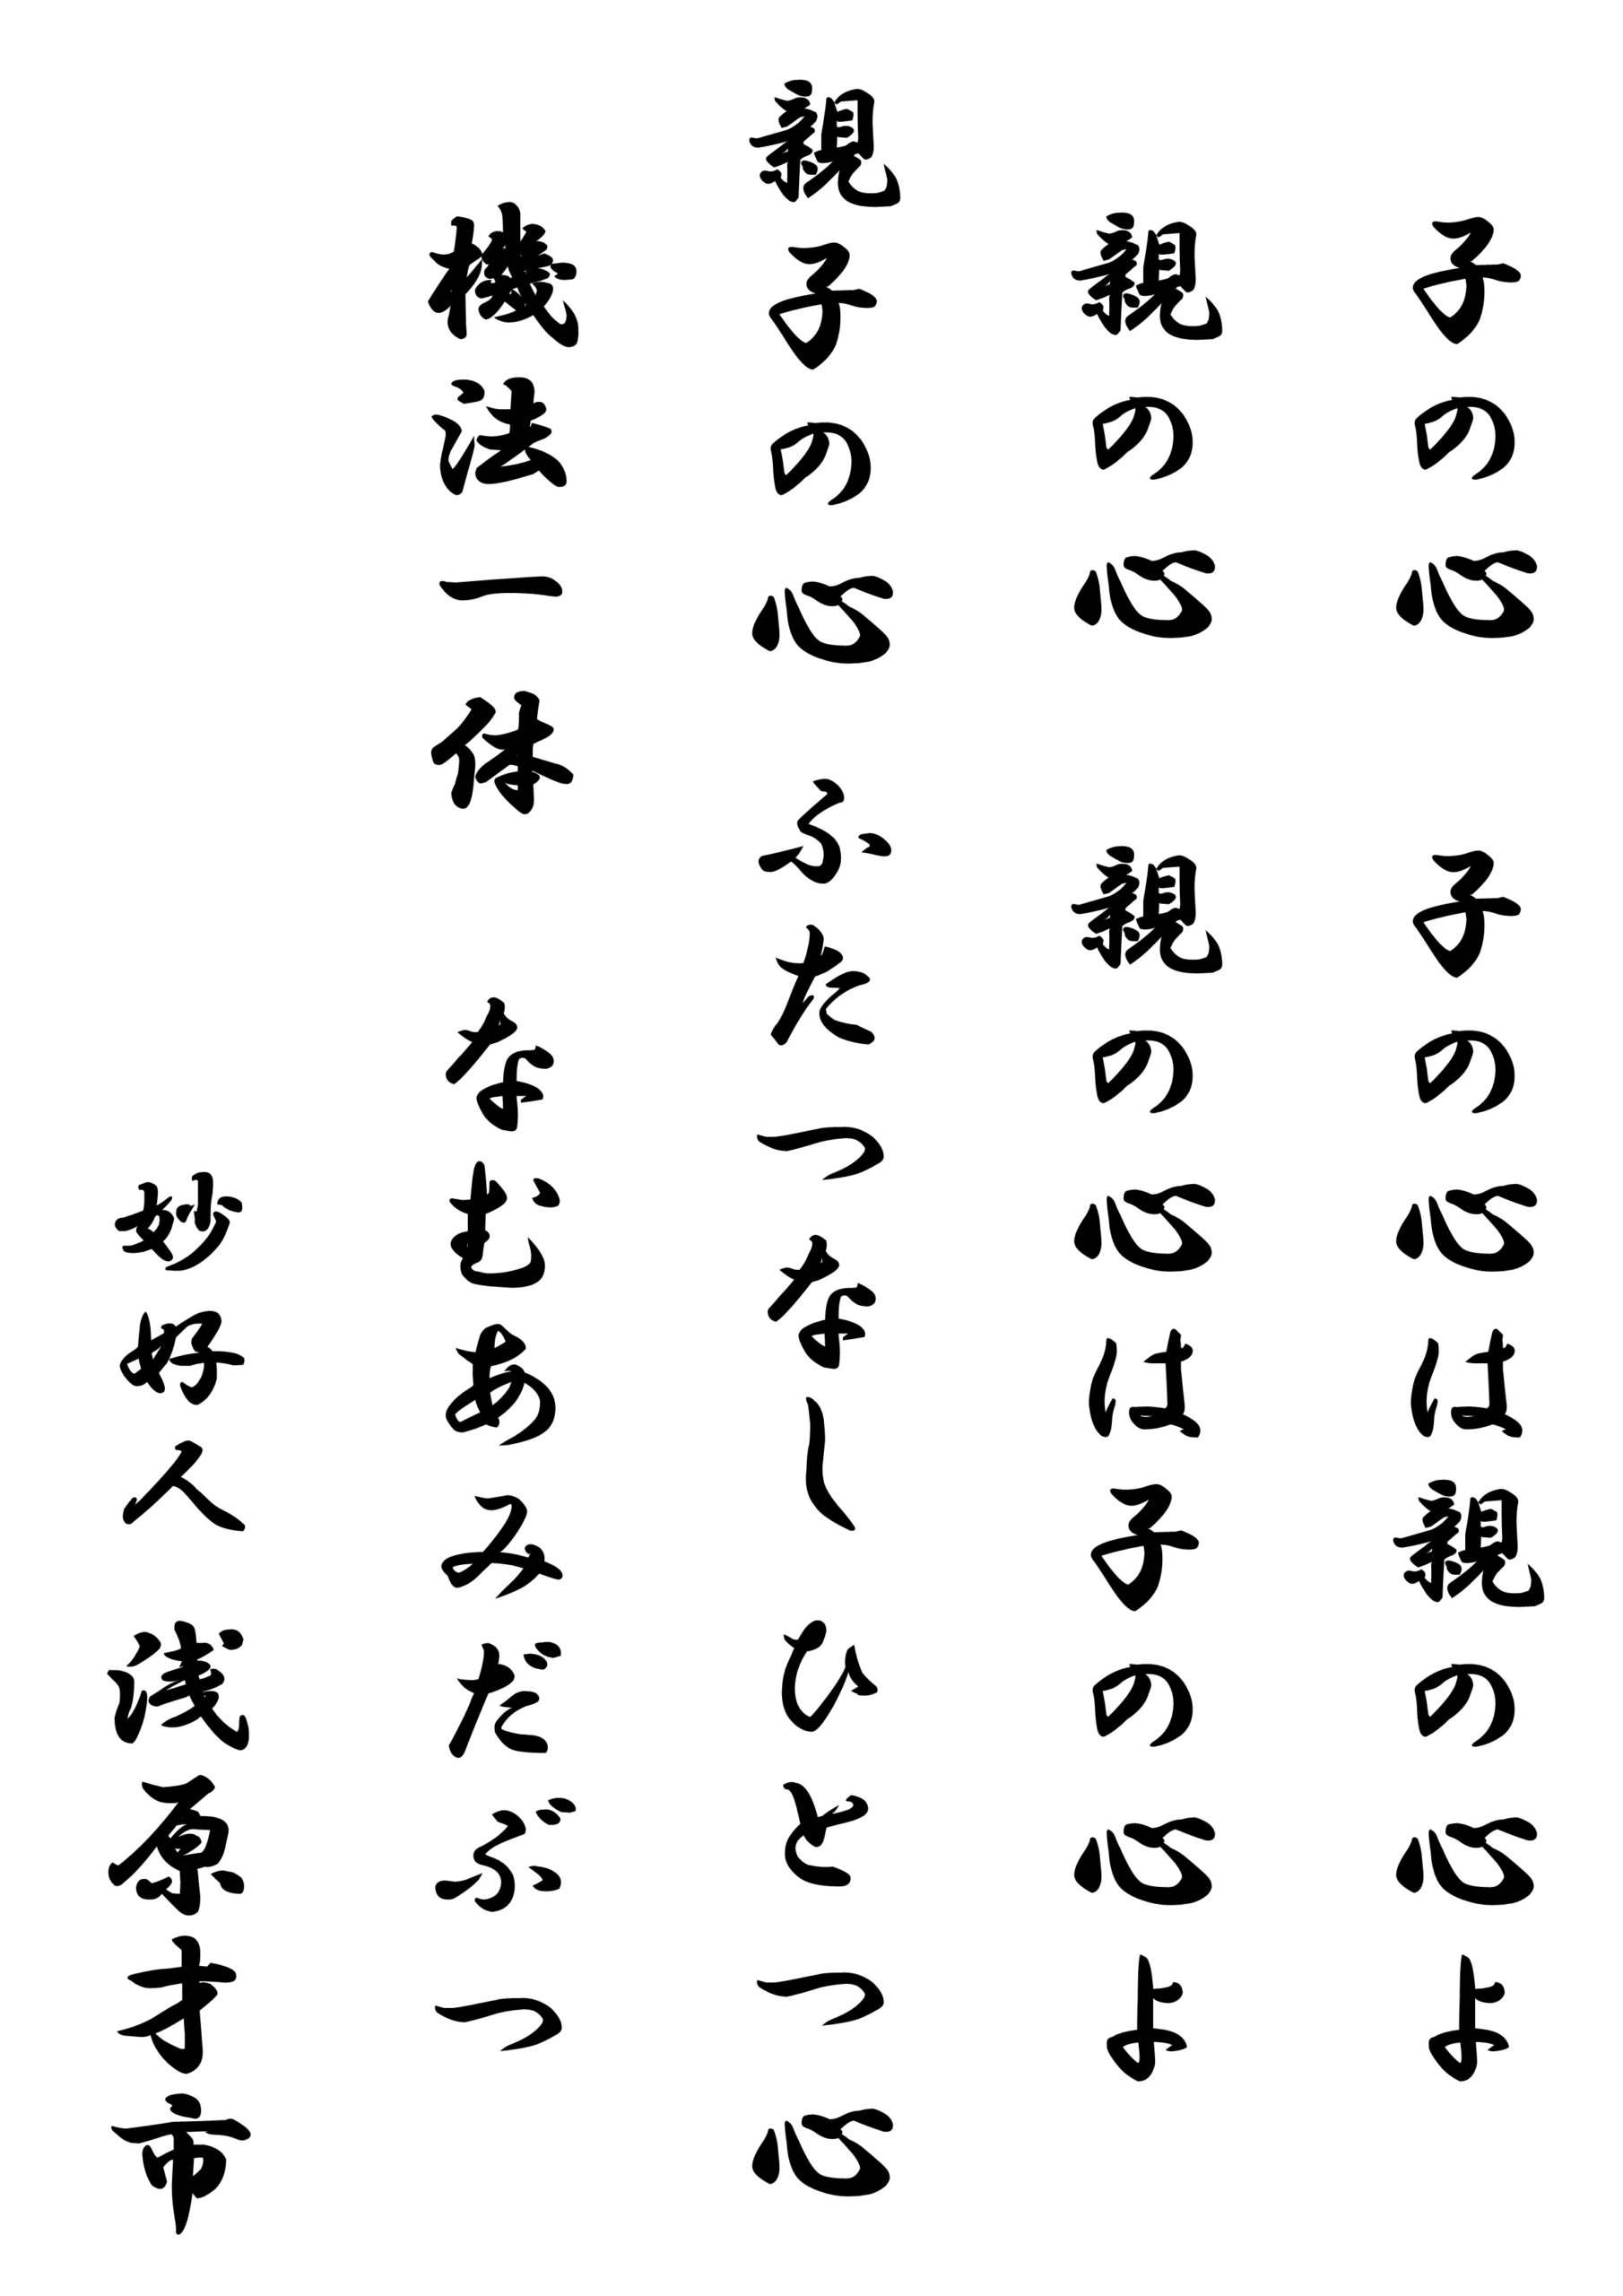 子の心　子の心は親の心よ
親の心　親の心は子の心よ
親子の心　ふたつなし　ひとつ心
機法一体　なむあみだぶつ
妙好人　浅原才市